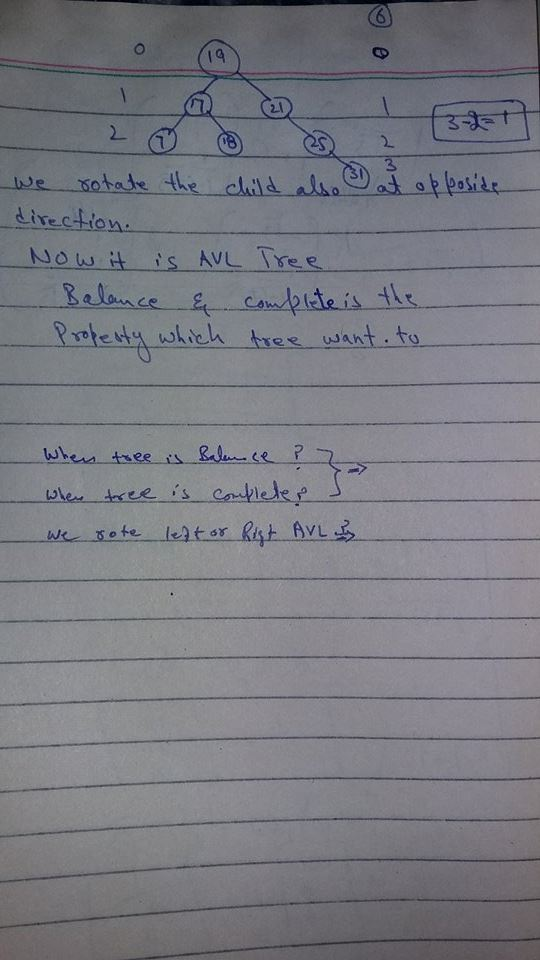 6
0 19 0
1 17 21 1 3-2=1
2 7 18 25 2
31 3
We rotate the child also at opposide
direction.
NOW it is AVL Tree
Balance & complete is the
Property which tree want. to
When tree is Balance ?
When tree is complete?
We rote left or Rigt AVL ?